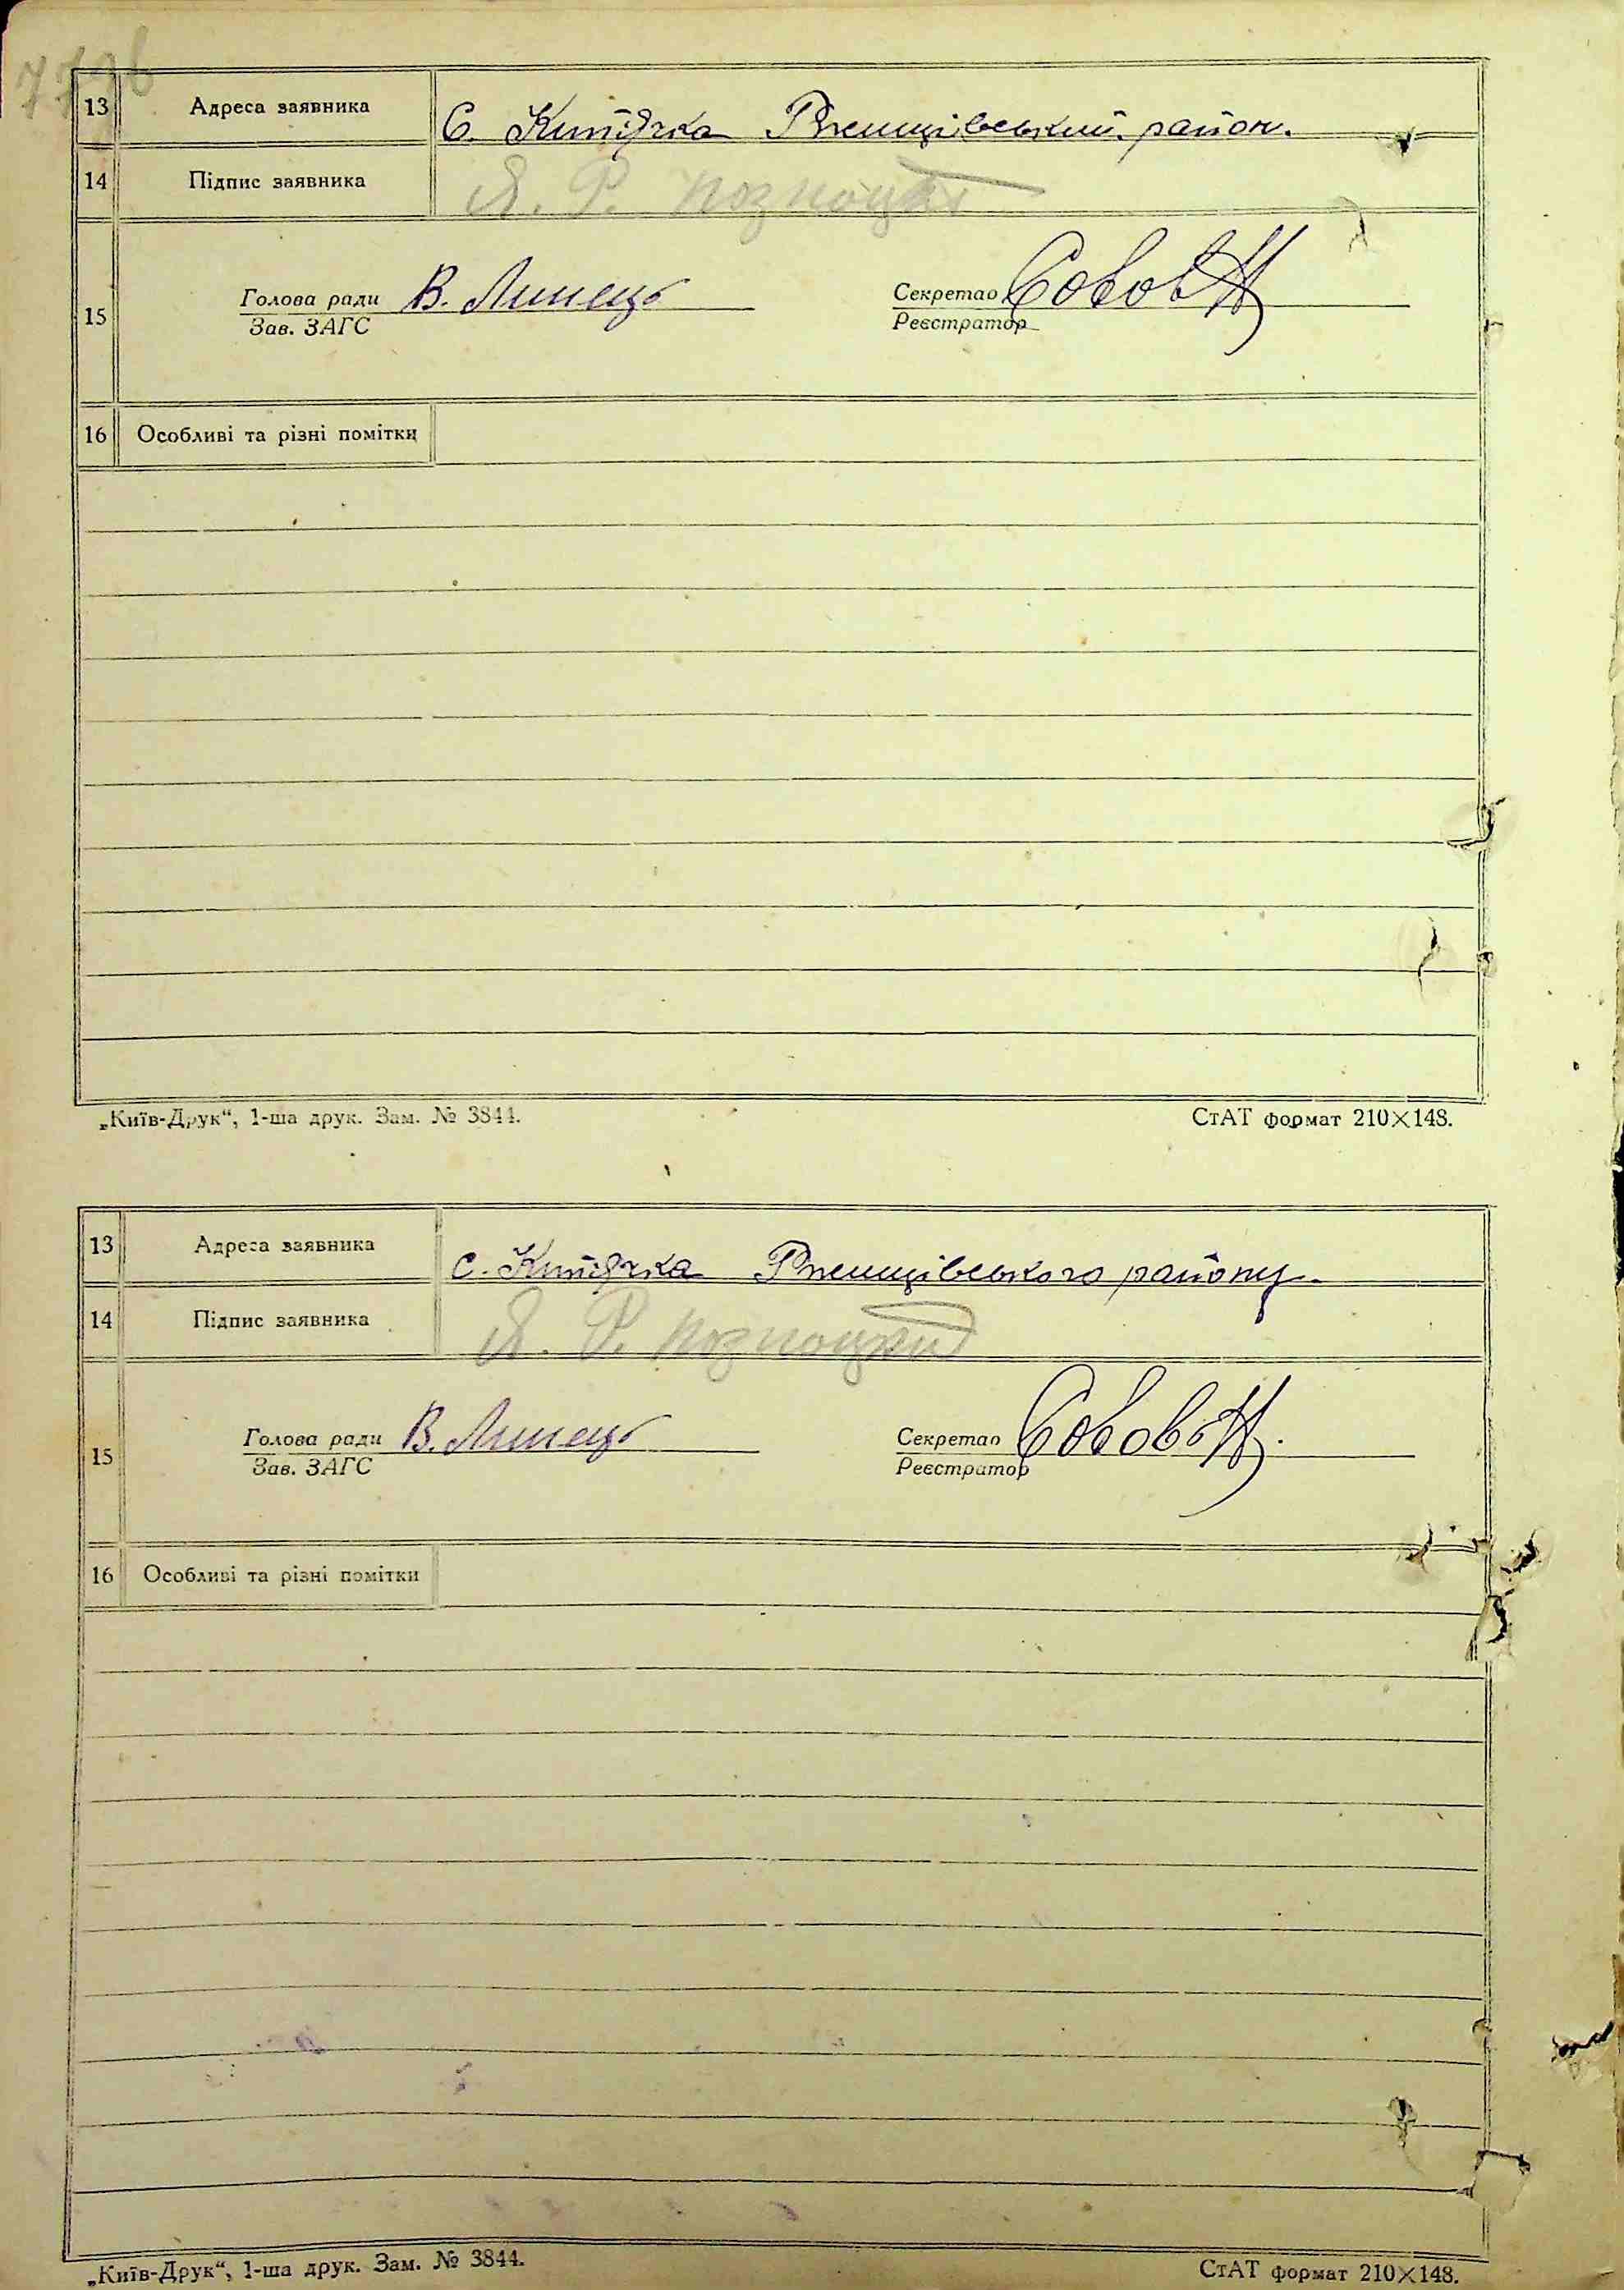 13 Адреса заявника С. Кип'ячка Ржищівський район.
14 Підпис заявника Я. Р.
15 Голова ради В. Липець Секретар
Зав. ЗАГС Реєстратор
16 Особливі та різні помітки
„Київ-Друк“, 1-ша друк. Зам. № 3844. СтАТ формат 210×148.
13 Адреса заявника с. Кип'ячка Ржищівського району.
14 Підпис заявника Я. Р.
15 Голова ради В. Липець Секретар
Зав. ЗАГС Реєстратор
16 Особливі та різні помітки
„Київ-Друк“, 1-ша друк. Зам. № 3844. СтАТ формат 210×148.